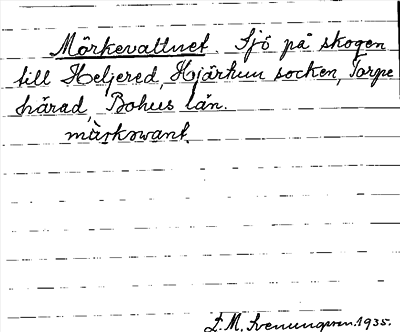 Mörkevattnet. Sjö på skogen
till Heljered, Hjärtum socken, Torpe
härad, Bohus län.
mærkəvant.
F. M. Svenungsson. 1935.